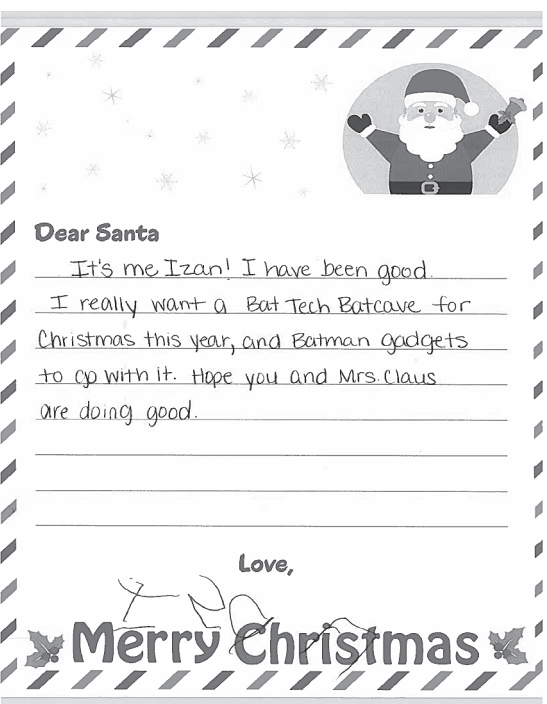 Dear Santa
It's me Izan! I have been good.
I really want a Bat Tech Batcave for
Christmas this year, and Batman gadgets
to go with it. Hope you and Mrs. Claus
are doing good.
Love,
IZan
Merry Christmas